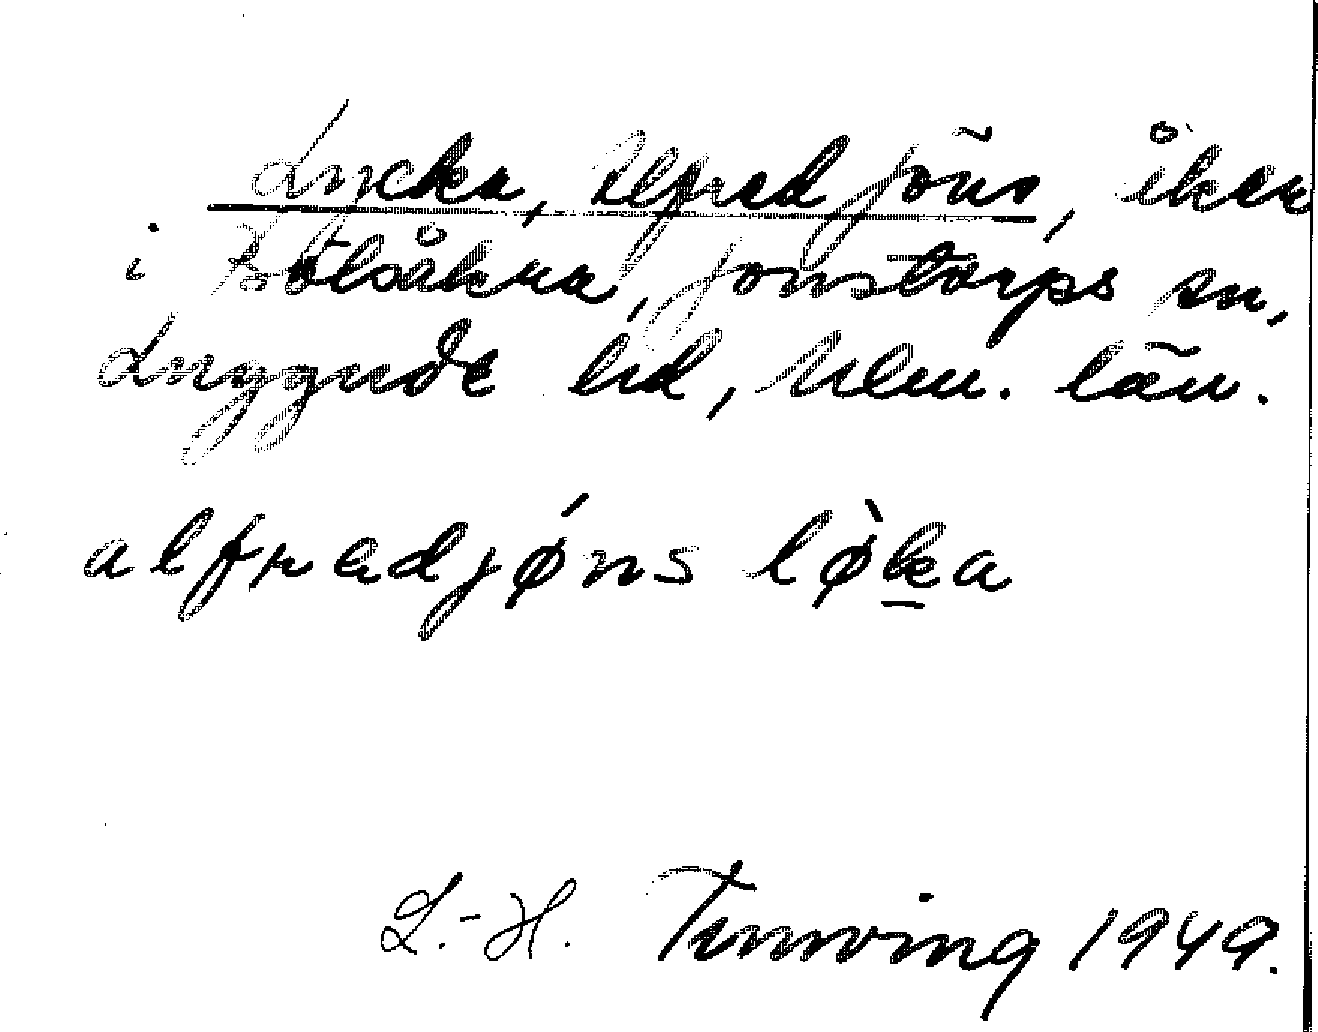 Lycka, Alfred Jöns, åker
i Bölsåkra, Jonstorps sn,
Luggude hd, Mlm. län.
alfredjǿns lø̀ka
L.-H. Tenwing 1949.